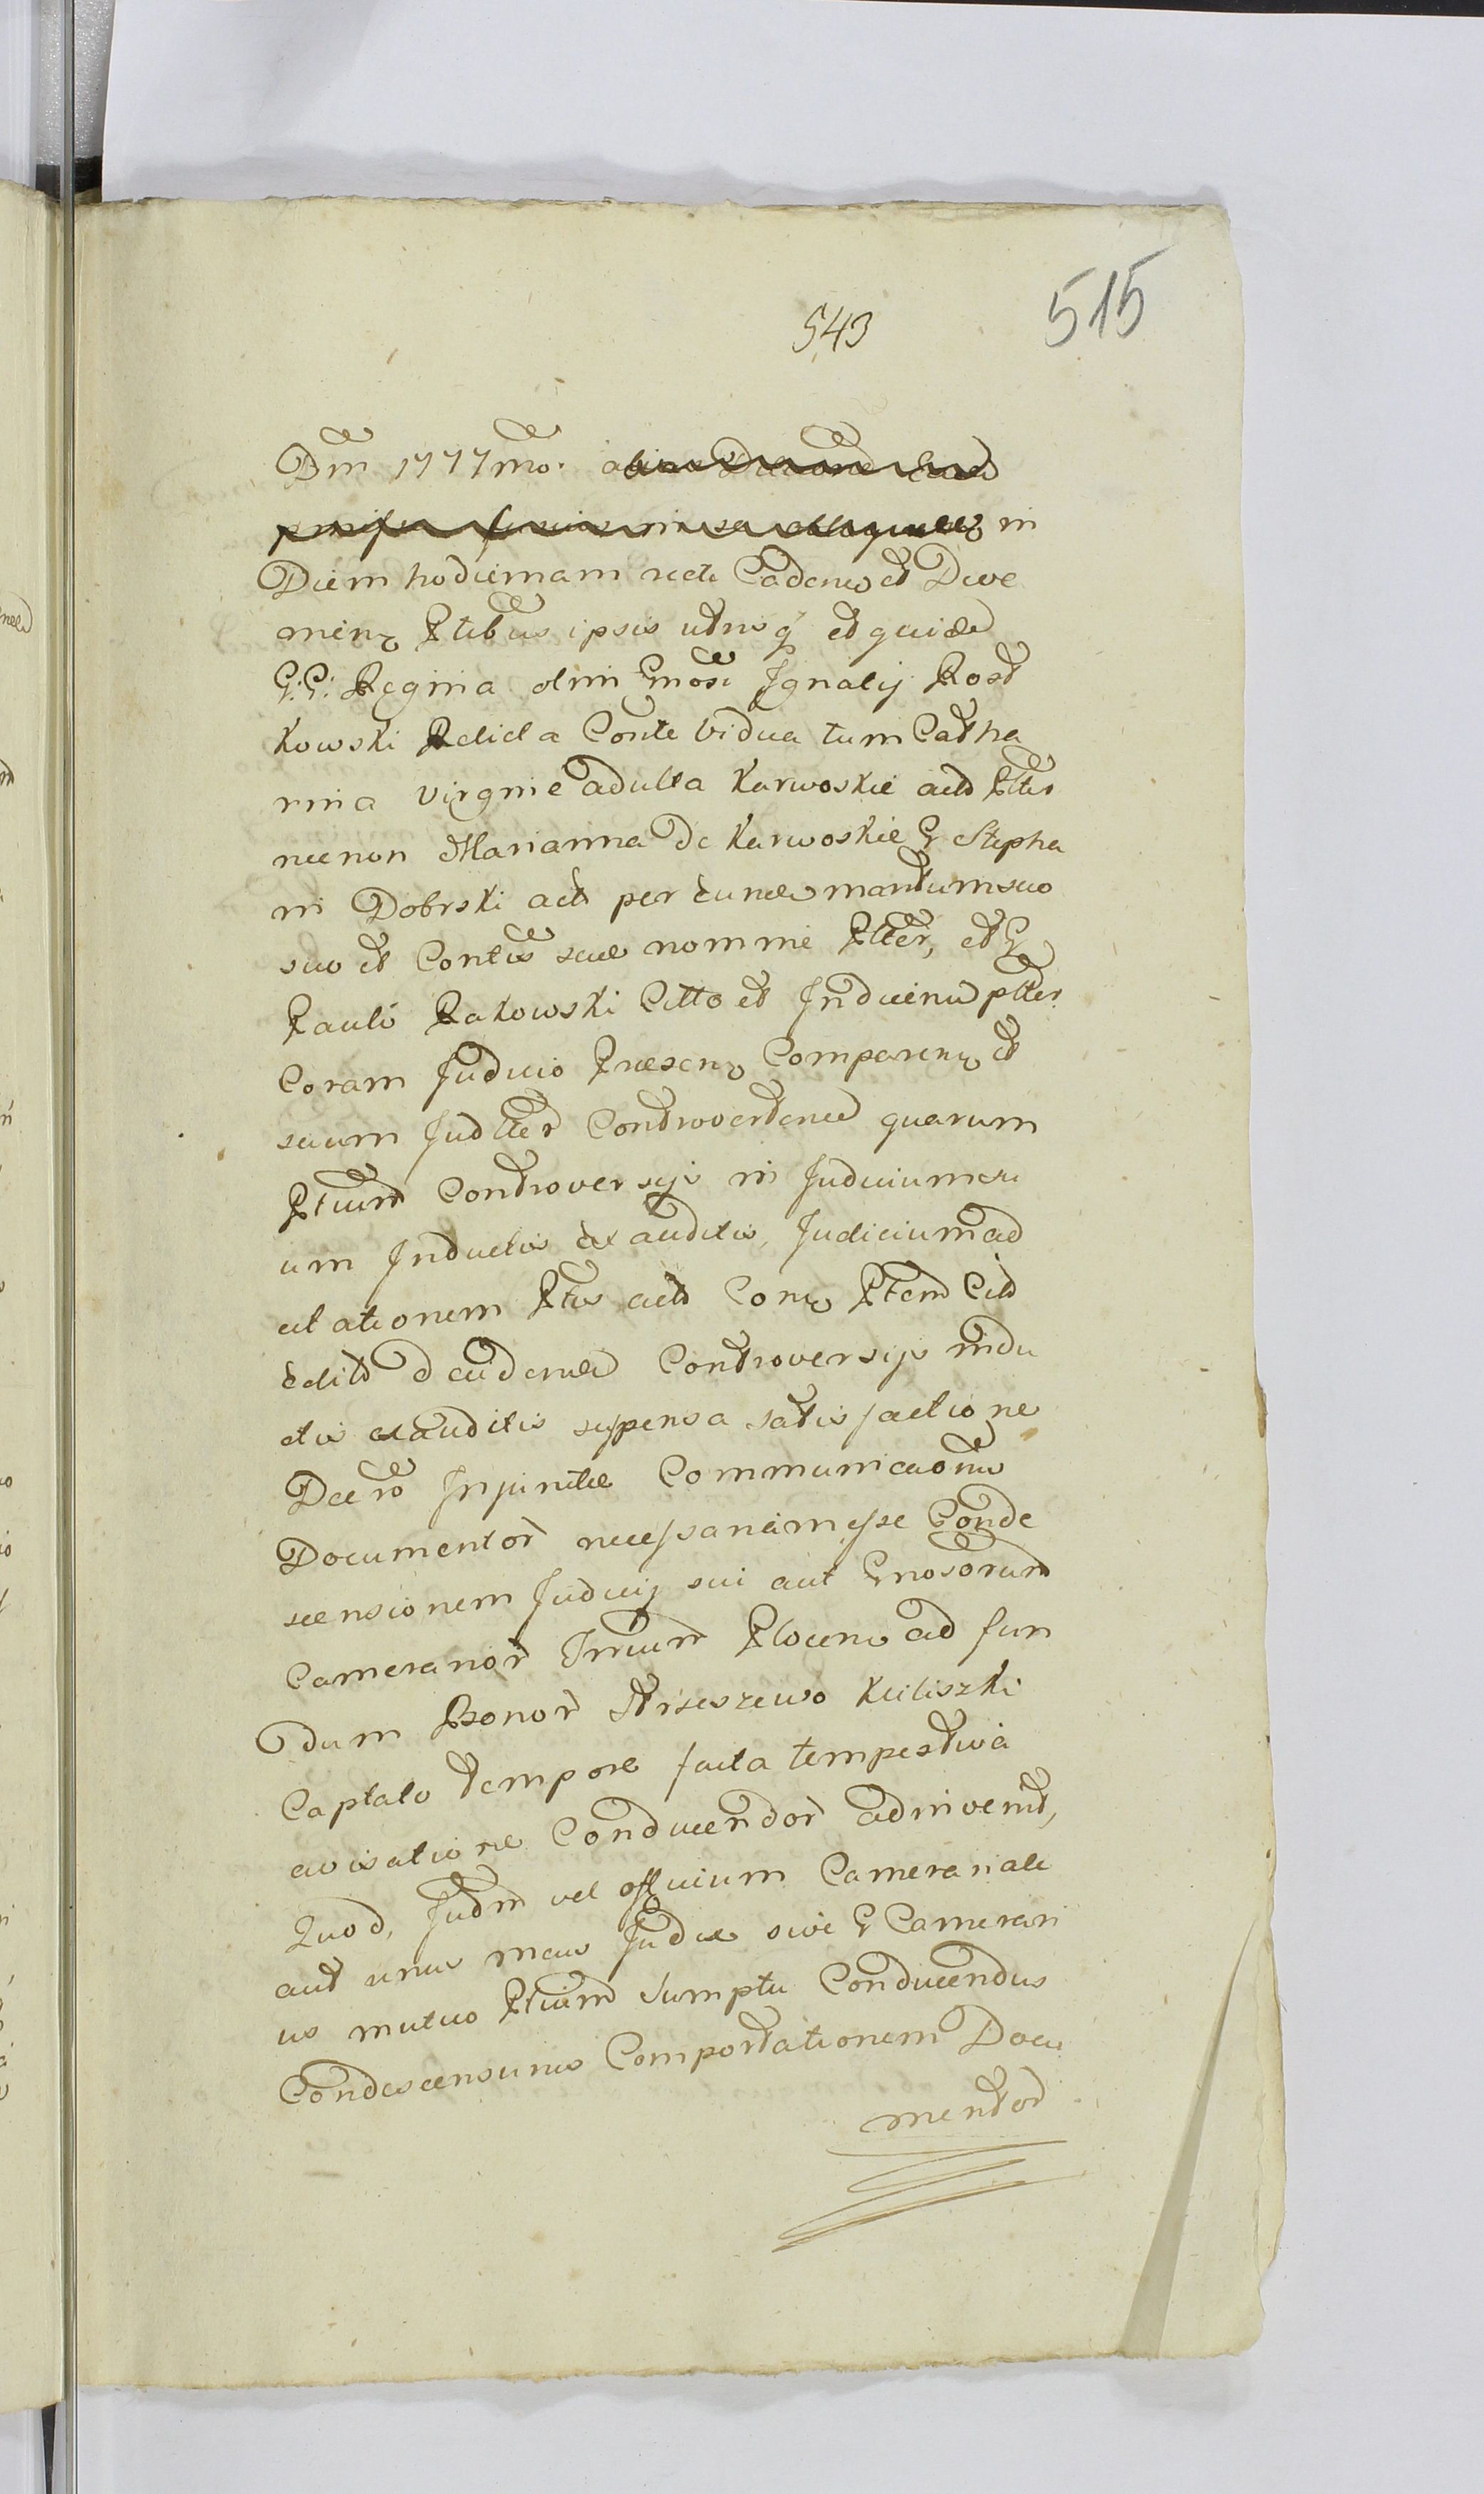 543
515
Dm 1777mo.
in
Diem hodiernam recte Cadenw et Deve
nien Ptibus ipsis utrisq et quidē
G: G: Regina olim Gnosi Ignatij Rost
kowski Relicta Conte Vidua tum Catha
rina virgine adulta Karwoskie actd Ptter
nec non Marianna de Karwoskie G Stepha
ni Dobrski actd per eund mantum suo
suo et Contis suæ nomine Ptter, et G
Pauli Rakowski Citto et Inducenw ptter
Coram Judicio Præsen Comparen et
suum Judtter Controverten quarum
Ptium Controversijs in Judicium su
um Inductis exauditis, Judicium ad
citationem Ptis actd Con Ptem Citd
editd deudend Controversijs indu
ctis exauditis suspensa satisfactione
Dcero Injunctæ Communicaonis
Documentor necessariam esse Conde
scensionem Judicij sui aut Gnosorum
Camerarior Trium Plocen ad fun
dum Bonor Strzeszewo Kuliszki
Captato tempore facta tempestiva
avisatione Conducendor adinvenit,
Quod, Judm vel offficium Camerariale
aut unus meus Judex sive G Camerari
us mutuo Ptium Sumptu Conducendus
Condescensurus Comportationem Docu
mentor